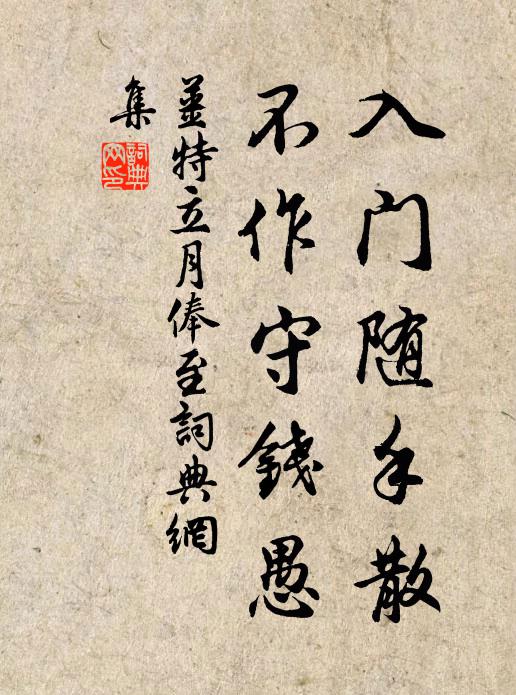 入门随手散
不作守錢愚
姜特立月俸至詞典網
集
詞典
网印